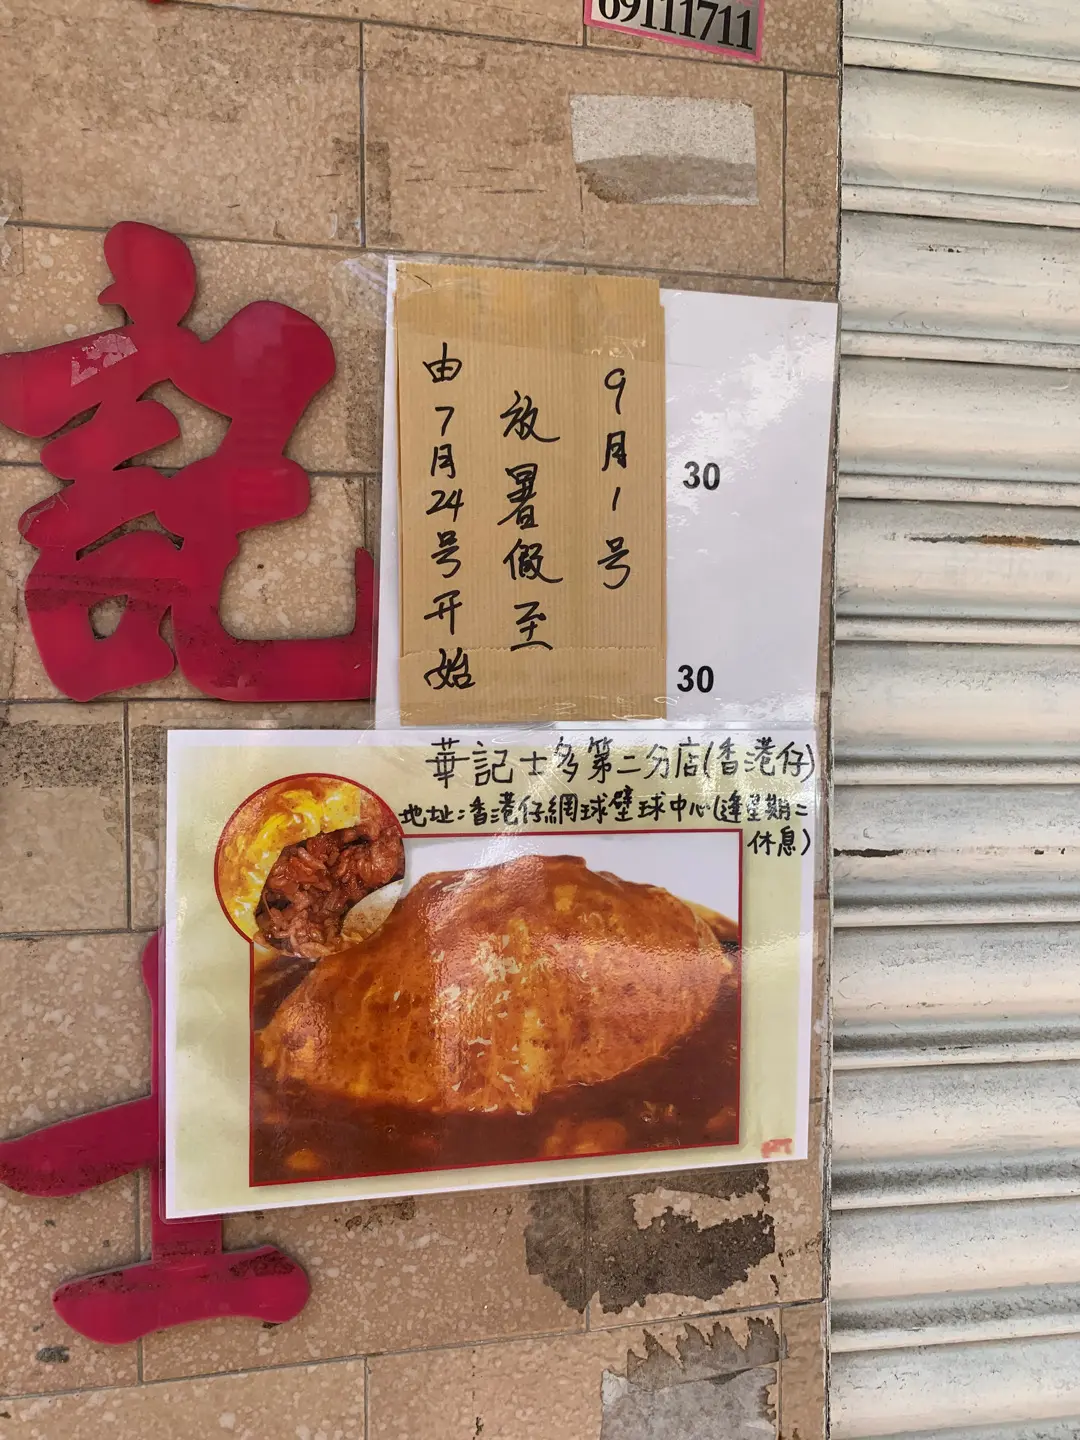 69111711
記
士
由7月24号开始
放暑假至
9月1号
30
30
華記士多第二分店(香港仔)
地址:香港仔網球壁球中心(逢星期二
休息)